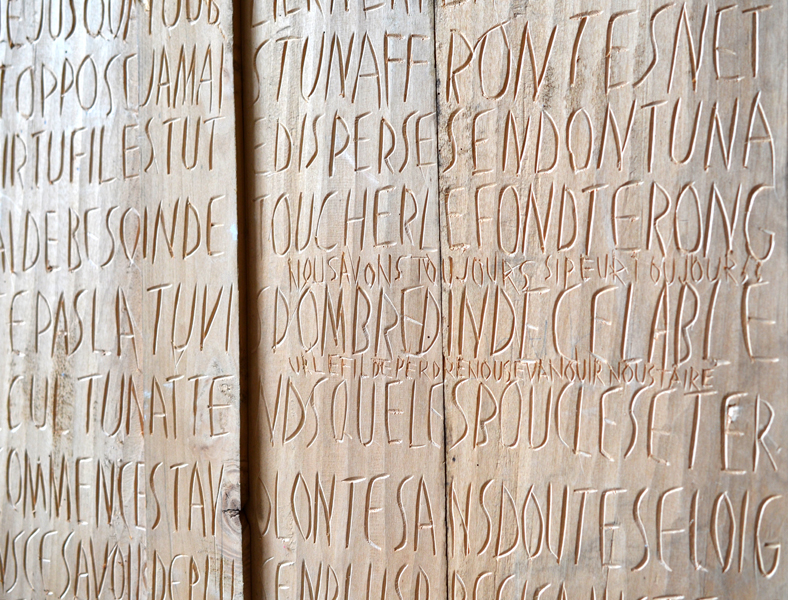 EJUSQUATOUB
TOPPOSEJAMAI STUNAFFRONTESNET
IRTUFILESTUT EDISPERSESENDONTUNA
ALDEBESOINDE TOUCHERLEFONDTERONG
NOUSAVONSTOUJOURSSIPEURTOUJOURS
EPASLATUVI SDOMBREDINDECELABLE
URLEFILDEPERDRENOUSEVANOUIRNOUSTAIRE
CULTUNATTE NDSQUELESBOUCLESETER
COMMENCESTAV OLONTESANSDOUTESELOIG
NSCESAVOIRDEPL